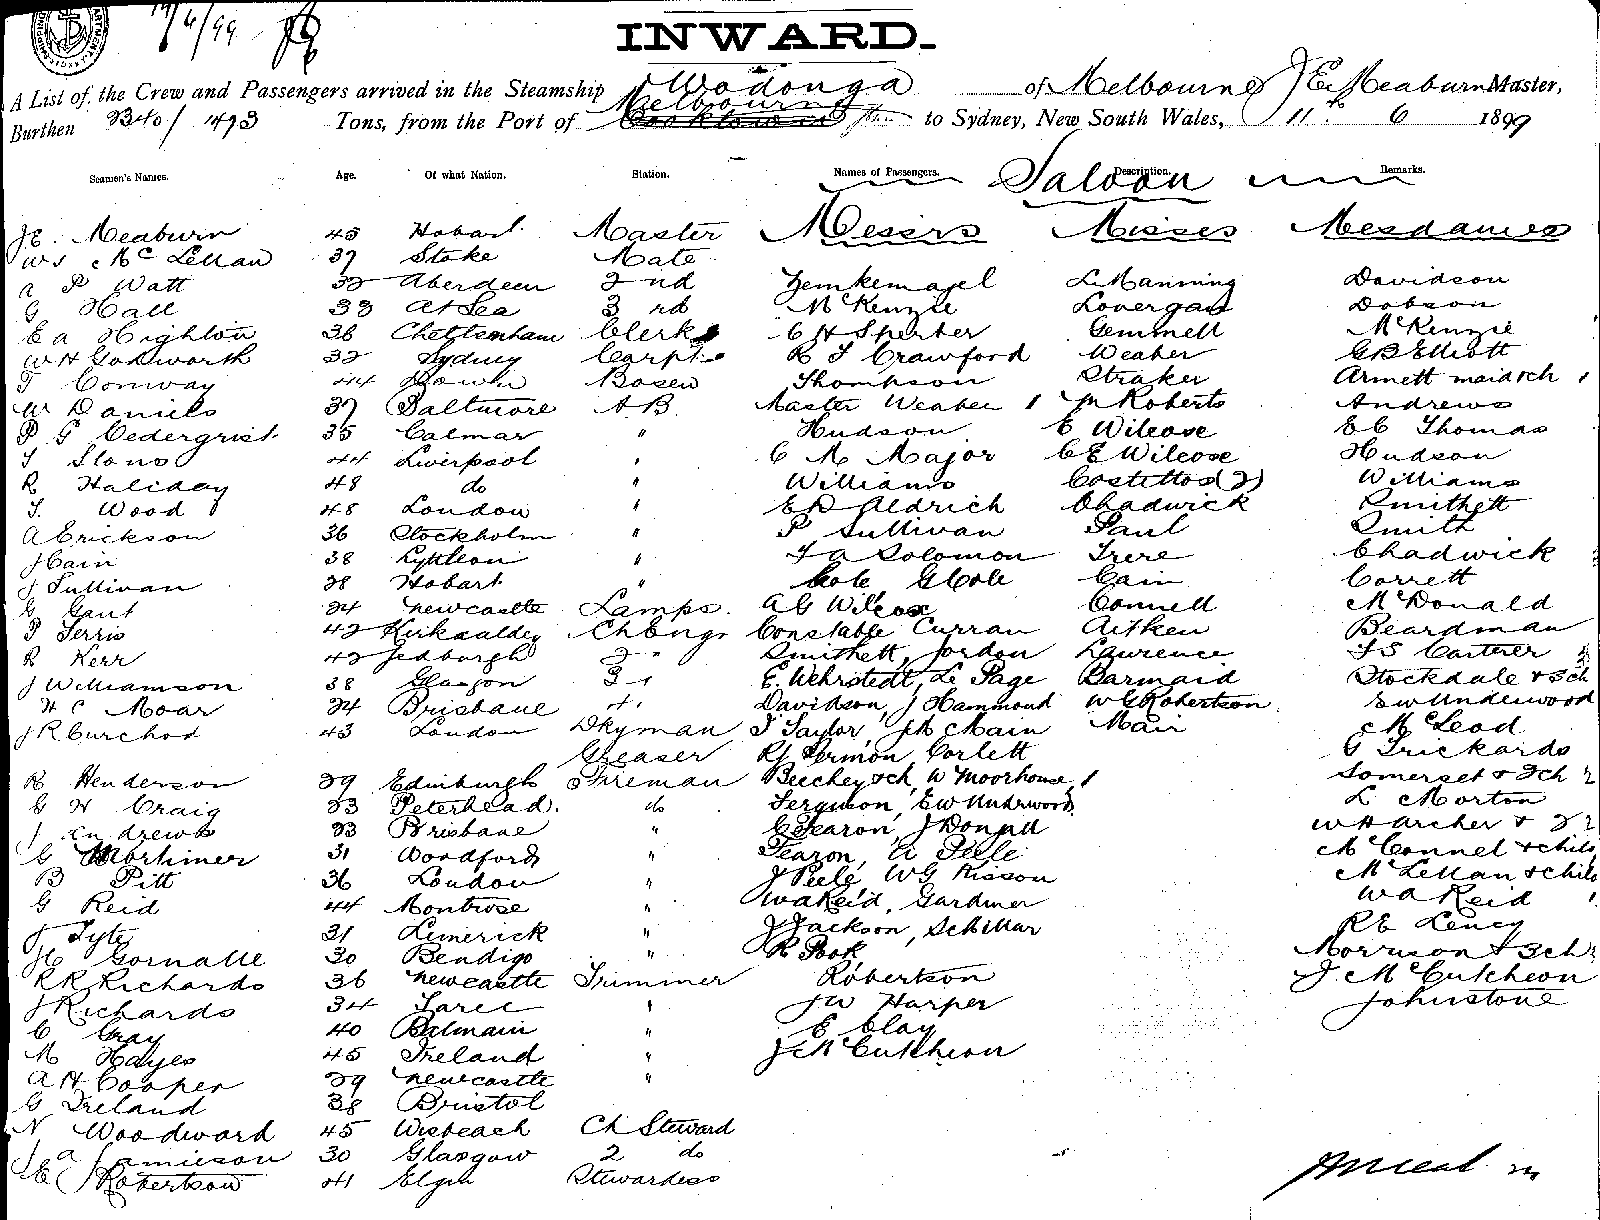 19/6/99
INWARD.
A List of the Crew and Passengers arrived in the Steamship Wodonga of Melbourne J E Meaburn Master,
Burthen 2340/1493 Tons, from the Port of Melbourne to Sydney, New South Wales, 11th 6 1899
Seamen's Names. Age. Of what Nation. Station. Names of Passengers. Description. Remarks.
Saloon
JE. Meaburn 45 Hobart Master Messrs Misses Mesdames
McLellan 37 Stoke Mate
A P Watt 32 Aberdeen 2nd L Manning Davidson
G Hall 33 At Sea 3rd McKenzie Lovergan Dobson
E A Highton 38 Cheltenham Clerk C H Gemmell McKenzie
W H 32 Sydney Carptr R T Crawford Weaber G B Elliott
T Conway 44 Down Bosen Thompson Straker Armett maid & ch 1
W Daniels 37 Baltimore A B. Master Weaber 1 Roberts Andrews
P G Cedergrist 35 Calmar " Hudson E Wilcose E C Thomas
T 44 Liverpool " C M Major C E Wilcose Hudson
R Haliday 48 do " Williams Costettos (2) Williams
T. Wood 48 London " E D Aldrich Chadwick Smithett
A Erickson 36 Stockholm " P Sullivan Paul Smith
J Cain 38 " A Solomon Chadwick
J Sullivan 28 Hobart " Cole G Cole Cain Corrett
G Gaut 24 Newcastle Lamps. A G Wilcox Connell McDonald
P Ferris 42 Kirkcaldey Ch Engr Constable Curran Aitken Beardman
R Kerr 42 Jedburgh 2 " Smithett, Jordon Lawrence F S Carterer
J Williamson 38 Glasgow 3 " E. Wehrstedt, Le Page Barmaid Stockdale & 3 ch
H C Moar 24 Brisbane 4 " Davidson, J Hammond W G Robertson E W Underwood
J R Curchod 43 London Dkyman T Taylor, Main Mair McLeod
Greaser Vernon, Corlett G Trickards
R Henderson 29 Edinburgh Fireman Beechey & ch, W Moorhouse, 1 Somerset & 2 ch 2
G H Craig 23 Peterhead. do Ferguson, E W Underwood L Morton
J Andrews 23 Brisbane " C Fearon, J W H Archer & 2
G Mortimer 31 Woodford " Fearon, A Peele McConnel & child
B Pitt 36 London " J Peele, W G Kisson McLellan & child
G Reid 44 Montrose " W A Reid, Gardner W A Reid
T Tyte 31 Limerick " J Jackson, Schillar R E
H Gornalle 30 Bendigo " R Pook Morrison & 3 ch
R R Richards 36 Newcastle Trimmer Robertson J McCutcheon
J Richards 34 " J W Harper Johnstone
C Gray 40 Balmain " E Clay
M Hayes 45 Ireland " J McCutcheon
A H Cooper 29 Newcastle "
G Ireland 38 Bristol
N Woodward 45 Wisbeach Ch Steward
J A Jamieson 30 Glasgow 2 do
E Robertson 41 Elgin Stewardess